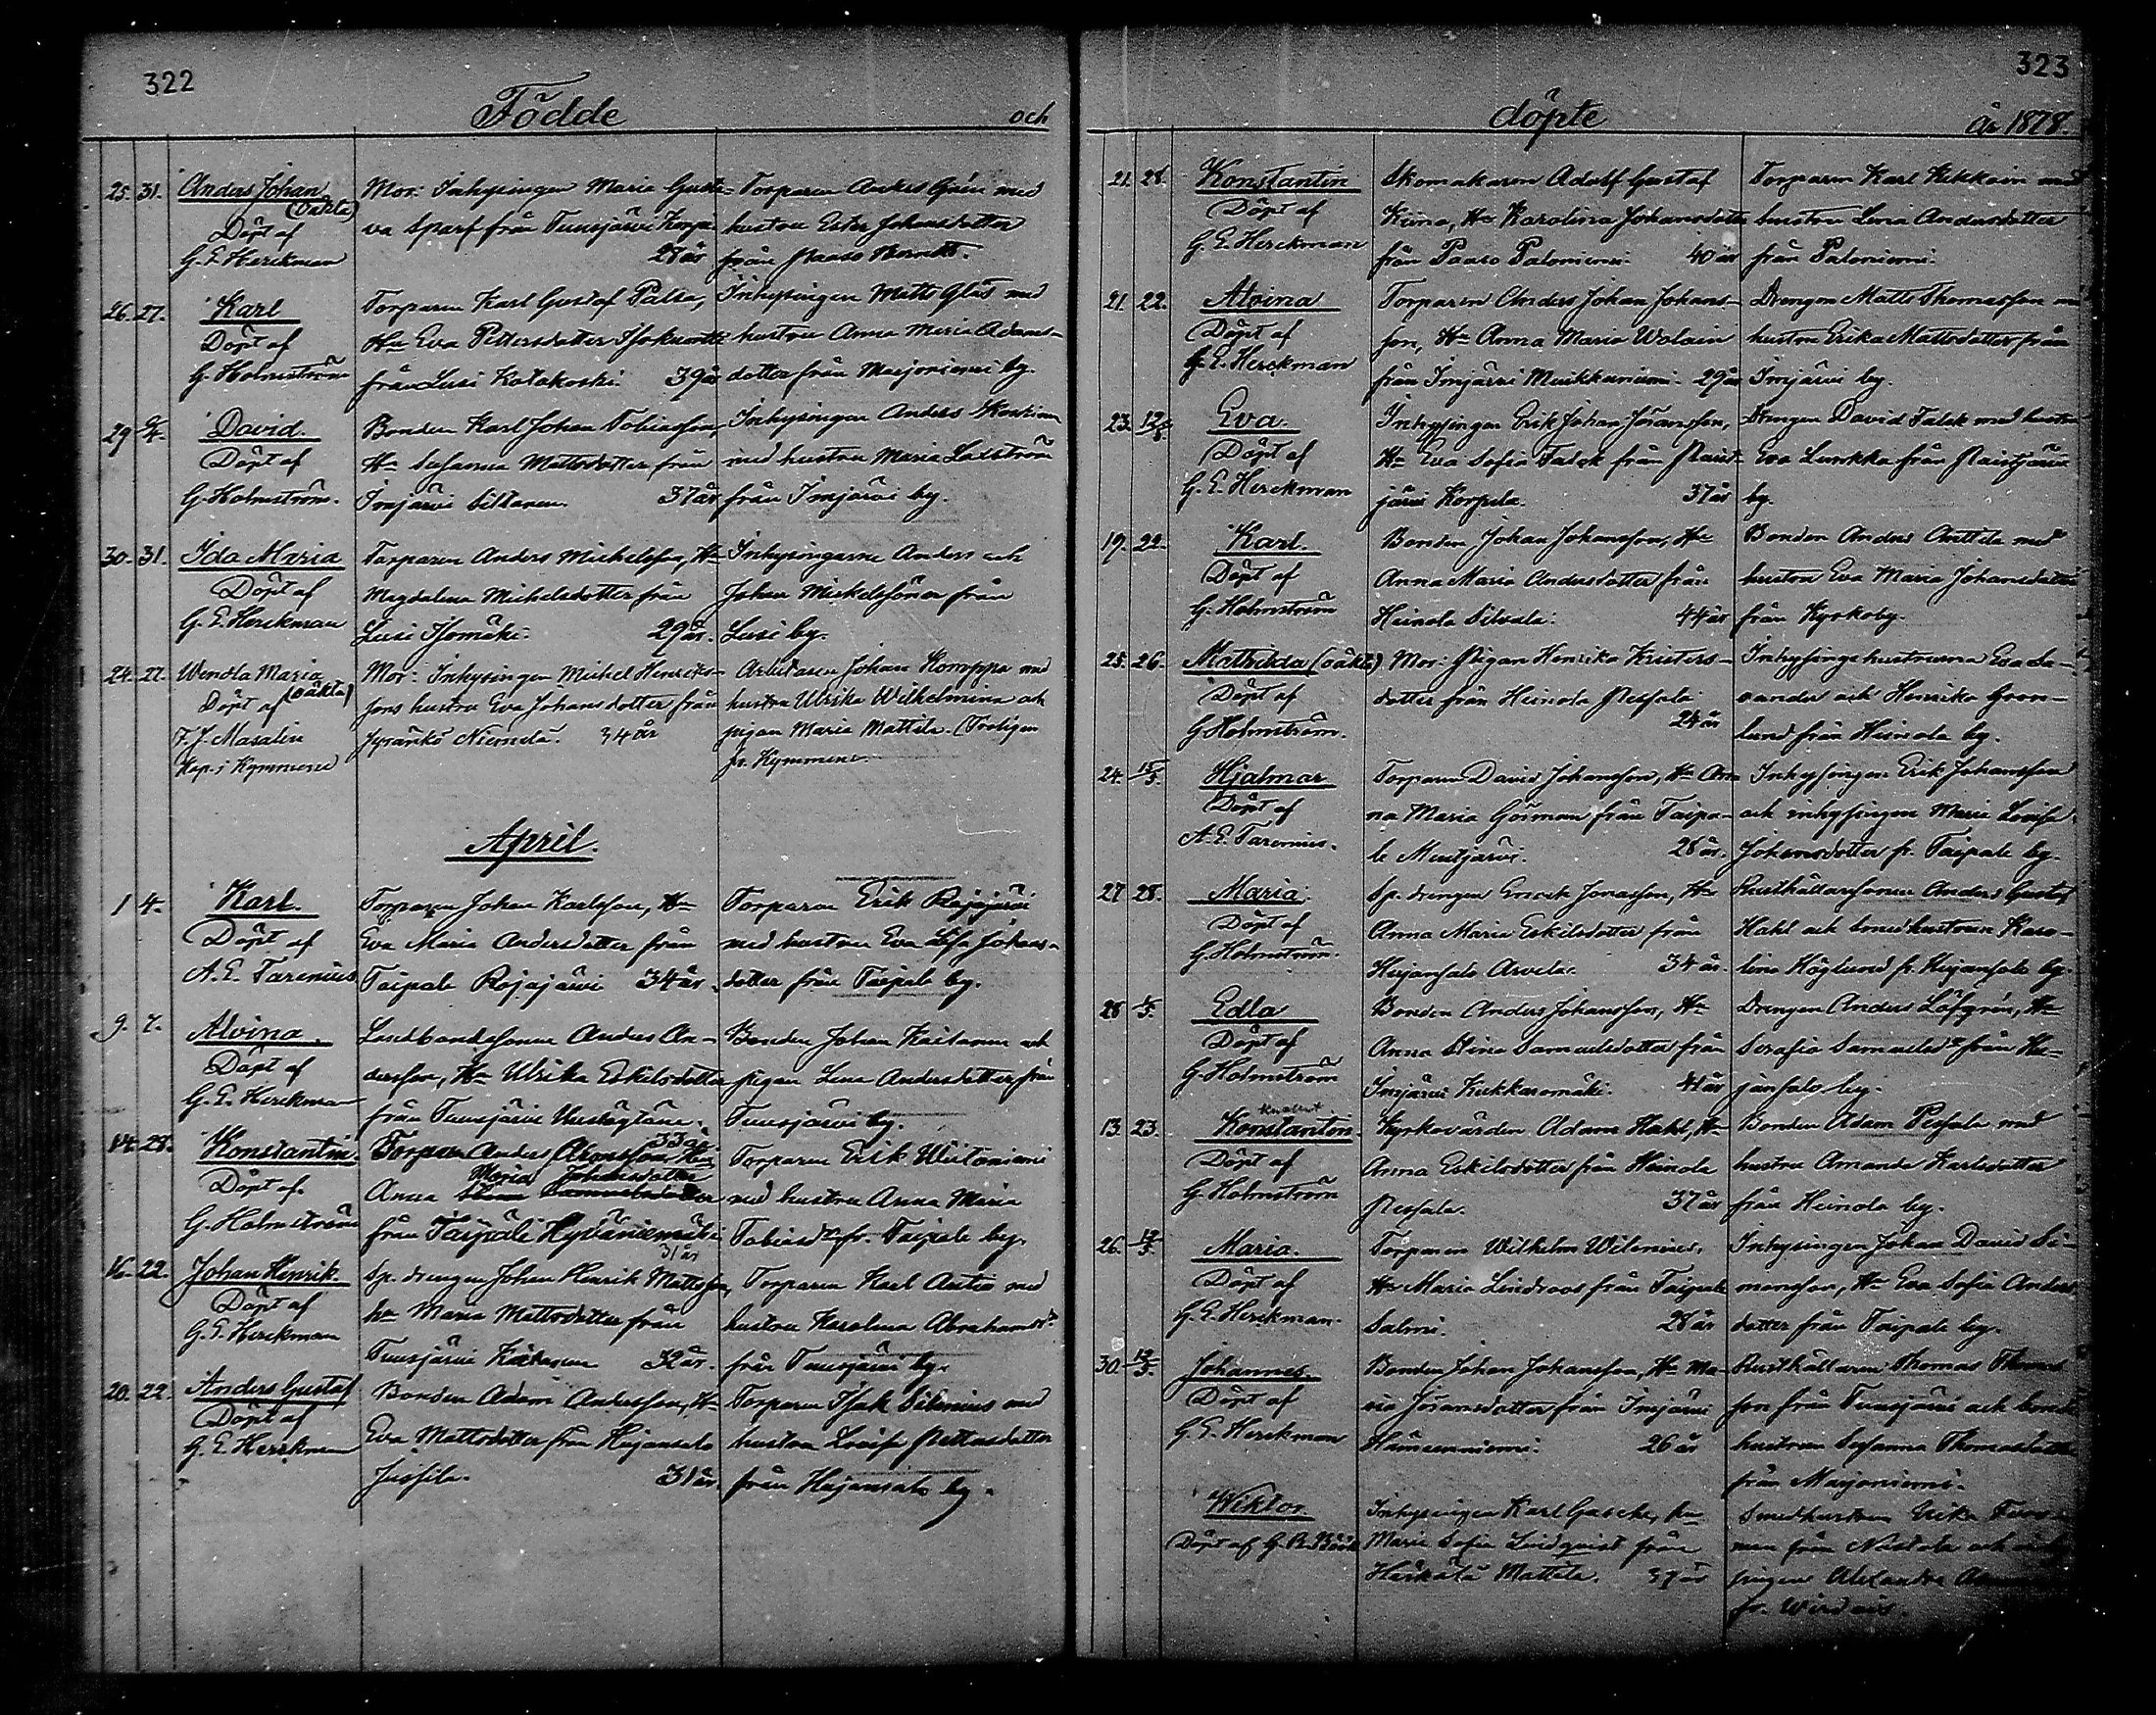 322
Födde och
25. 31. Anders Johan
(oäkta)
Döpt af
G. E. Herckman
Mor: Inhysingen Maria Gusta-
va Sparf från Tuusjärvi
28 år
Torparen Anders Grén med
hustru Ester Johansdotter
från
26. 27. Karl
Döpt af
G. Holmström
Torparen Karl Gustaf Palsa,
Hu Eva Pettersdotter
från Lusi Koskakoski. 39 år
Inhysingen Matts Glas med
hustru Anna Maria Adams-
dotter från Marjoniemi by.
29 2/4. David.
Döpt af
G. Holmström.
Bonden Karl Johan Tobiasson,
Hu Susanna Mattsdotter från
Imjärvi 37 år
Inhysingen Anders
med hustru Maria
från Imjärvi by.
30. 31. Ida Maria
Döpt af
G. E. Herckman
Torparen Anders Michelsson, Hu
Magdalena Michelsdotter från
Lusi Isomäki. 29 år.
Inhysingarne Anders och
Johan Mickelsöner från
Lusi by.
24. 27. Wendla Maria
(oäkta)
Döpt af
F. J. Masalin
Kap. i Kymmene
Mor: Inhysingen Michel Henriks-
sons hustru Eva Johansdotter från
Jyränkö Niemelä. 34 år
Arbetaren Johan Komppa med
hustru Ulrika Wilhelmina och
pigan Maria Mattila. (Troligen
fr. Kymmene
April.
1 4. Karl.
Döpt af
A. E. Tarenius
Torparen Johan Karlsson, Hu
Eva Maria Andersdotter från
Taipale Rajajärvi 34 år.
Torparen Erik Rajajärvi
med hustru Eva Lisa Johans-
dotter från Taipale by.
9. 7. Alvina.
Döpt af
G. E. Herckman
Landbondesonen Anders An-
dersson, Hu Ulrika Eskilsdotter
från Tuusjärvi
33 år
Bonden Johan Kaitanen och
pigan Lena Andersdotter från
Tuusjärvi by.
14. 28. Konstantin.
Döpt af
G. Holmström
Torparen Anders Aronsson, Hu
Maria Johansdotter
Anna
från Taipale Hyvänämäki
31 år
Torparen Erik Wiitaniemi
med hustru Anna Maria
Tobiasdr fr. Taipale by.
16. 22. Johan Henrik.
Döpt af
G. E. Herckman
Sp. drengen Johan Henrik Mattsson,
hu Maria Mattsdotter från
Tuusjärvi Kaitanen 32 år.
Torparen Karl Antin med
hustru Karolina Abrahamsdr
från Tuusjärvi by.
20. 22. Anders Gustaf
Döpt af
G. E. Herckman
Bonden Adam Andersson, Hu
Eva Mattsdotter från Hujansalo
Jussila. 31 år.
Torparen Isak Silenius med
hustru Lovisa Pettersdotter
från Hujansalo by.
323
döpte År 1878.
21. 28. Konstantin
Döpt af
G. E. Herckman
Skomakaren Adolf Gustaf
Keino, Hu Karolina Johansdotter
från Paaso Paloniemi. 40 år
Torparen Karl Kekkoin med
hustru Lena Andersdotter
från Paloniemi.
21. 22. Alvina
Döpt af
G. E. Herckman
Torparen Anders Johan Johans-
son, Hu Anna Maria Wolain
från Imjärvi 29 år
Drengen Matts Thomasson
hustru Erika Mattsdotter från
Imjärvi by.
23. 12/5. Eva.
Döpt af
G. E. Herckman
Inhysingen Erik Johan Göransson,
Hu Eva Sofia Falck från
järvi Korpela. 37 år
Drengen David Falck med hustru
Eva Lurkka från
by.
19. 22. Karl.
Döpt af
G. Holmström
Bonden Johan Johansson, Hu
Anna Maria Andersdotter från
Heinola Silvola. 44 år
Bonden Anders Anttila med
hustru Eva Maria Johansdotter
från Kyrkoby.
25. 26. Mathilda (oäkta)
Döpt af
G. Holmström.
Mor: Pigan Henrika Kristers-
dotter från Heinola
24 år
Inhysingehustrurna Eva Sa-
vander och Henrika Grön-
lund från Heinola by.
24. 15/5. Hjalmar
Döpt af
A. E. Tarenius.
Torparen David Johansson, Hu An-
na Maria Görman från Taipa-
le Mustjärvi. 28 år.
Inhysingen Erik Johansson
och inhysingen Maria Lovisa
Johansdotter fr. Taipale by.
27 28. Maria.
Döpt af
G. Holmström.
Sp. drengen Jonasson, Hu
Anna Maria Eskilsdotter från
Hujansalo Arvela. 34 år.
Rusthållarsonen Anders Gustaf
Hahl och smedhustrun Karo-
lina Höglund fr. Hujansalo by.
28 1/5. Edla
Döpt af
G. Holmström
Bonden Anders Johansson, Hu
Anna Stina Samuelsdotter från
Imjärvi Kukkaromäki. 41 år
Drengen Anders Löfgrén, Hu
Serafia Samuelsdr från Hu-
jansalo by.
13. 23. Konstantin.
Döpt af
G. Holmström
Kyrkovärden Adam Hahl, Hu
Anna Eskilsdotter från Heinola
37 år
Bonden Adam med
hustru Amanda Karlsdotter
från Heinola by.
26. 12/5. Maria.
Döpt af
G. E. Herckman.
Torparen Wilhelm Wilenius,
Hu Maria Lindroos från Taipale
Salmi. 28 år
Inhysingen Johan David Si-
monsson, Hu Eva Sofia Anders
dotter från Taipale by.
30. 12/5. Johannes.
Döpt af
G. E. Herckman
Bonden Johan Johansson, Hu Ma-
ria Göransdotter från Imjärvi
Hämeenniemi. 26 år
Rusthållaren Thomas Thomas
son från Tuusjärvi och bonde
hustrun Susanna Thomasdotter
från Marjoniemi.
Wiktor.
Döpt af G. R.
Inhysingen Karl Gasche, hu
Maria Sofia Lindquist från
Härkälä Mattila. 37 år
Smedhustrun Erika
från och
pigan Alexandra
fr.